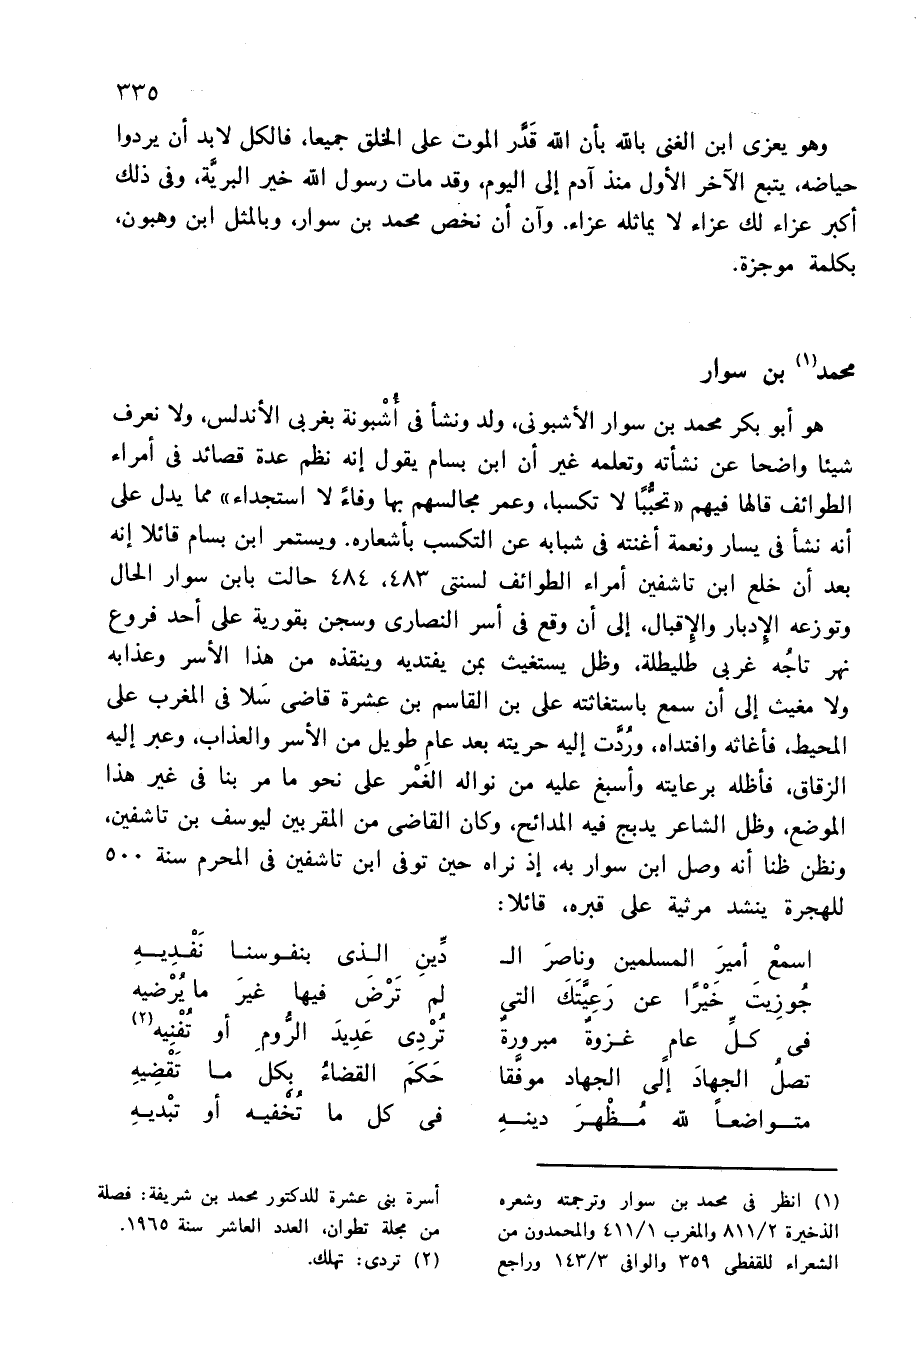 ٣٣٥
وهو يعزى ابن الغنى بالله بأن الله قَدَّر الموت على الخلق جميعا، فالكل لابد أن يردوا
حياضه، يتبع الآخر الأول منذ آدم إلى اليوم، وقد مات رسول الله خير البريَّة، وفى ذلك
أكبر عزاء لك عزاء لا يماثله عزاء. وآن أن نخص محمد بن سوار، وبالمثل ابن وهبون،
بكلمة موجزة.
محمد(١) بن سوار
هو أبو بكر محمد بن سوار الأشبونى، ولد ونشأ فى أُشْبونة بغربى الأندلس، ولا نعرف
شيئا واضحا عن نشأته وتعلمه غير أن ابن بسام يقول إنه نظم عدة قصائد فى أمراء
الطوائف قالها فيهم «تحبُّبًا لا تكسبا، وعمر مجالسهم بها وفاءً لا استجداء» مما يدل على
أنه نشأ فى يسار ونعمة أغنته فى شبابه عن التكسب بأشعاره. ويستمر ابن بسام قائلا إنه
بعد أن خلع ابن تاشفين أمراء الطوائف لسنتى ٤٨٣، ٤٨٤ حالت بابن سوار الحال
وتوزعه الإدبار والإقبال، إلى أن وقع فى أسر النصارى وسجن بقورية على أحد فروع
نهر تاجُه غربى طليطلة، وظل يستغيث بمن يفتديه وينقذه من هذا الأسر وعذابه
ولا مغيث إلى أن سمع باستغاثته على بن القاسم بن عشرة قاضى سَلا فى المغرب على
المحيط، فأغاثه وافتداه، ورُدَّت إليه حريته بعد عام طويل من الأسر والعذاب، وعبر إليه
الزقاق، فأظله برعايته وأسبغ عليه من نواله الغَمْر على نحو ما مر بنا فى غير هذا
الموضع، وظل الشاعر يدبج فيه المدائح، وكان القاضى من المقربين ليوسف بن تاشفين،
ونظن ظنا أنه وصل ابن سوار به، إذ نراه حين توفى ابن تاشفين فى المحرم سنة ٥٠٠
للهجرة ينشد مرثية على قبره، قائلا:
اسمعْ أميرَ المسلمين وناصرَ الـ دِّينِ الذى بنفوسنا نَفْديهِ
جُوزِيتَ خَيْرًا عن رَعِيَّتَكَ التى لم تَرْضَ فيها غيرَ ما يُرْضيه
فى كلِّ عامٍ غزوةً مبرورةً تُرْدِى عَدِيدَ الرُّومِ أو تُفْنِيه(٢)
تصلُ الجهادَ إلى الجهاد موفَّقا حَكَمَ القضاءُ بكل ما تَقْضِيهِ
متواضعاً لله مُظْهِرَ دينهِ فى كل ما تُخْفيه أو تبْديهِ
(١) انظر فى محمد بن سوار وترجمته وشعره
الذخيرة ٨١١/٢ والمغرب ٤١١/١ والمحمدون من
الشعراء للقفطى ٣٥٩ والوافى ١٤٣/٣ وراجع
أسرة بنى عشرة للدكتور محمد بن شريفة: فصلة
من مجلة تطوان، العدد العاشر سنة ١٩٦٥.
(٢) تردى: تهلك.